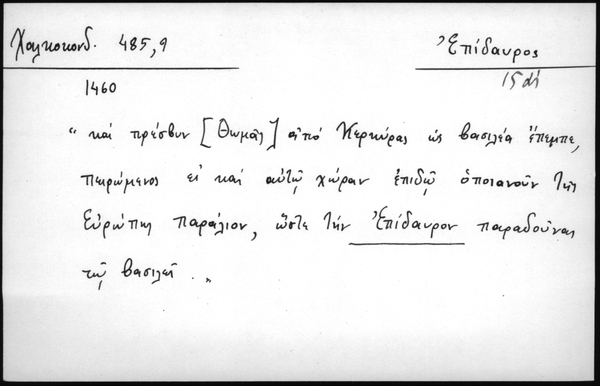 Χαλκοκονδ. 485,9
Ἐπίδαυρος
15 di
1460
„ καὶ πρέσβυν [Θωμᾶς] ἀπὸ Κερκύρας ὡς βασιλέα ἔπεμπε,
πειρώμενος εἰ καὶ αὐτῷ χώραν ἐπιδῷ ὁποιανοῦν τῆς
Εὐρώπης παράλιον, ὥστε τὴν Ἐπίδαυρον παραδοῦναι
τῷ βασιλεῖ. „